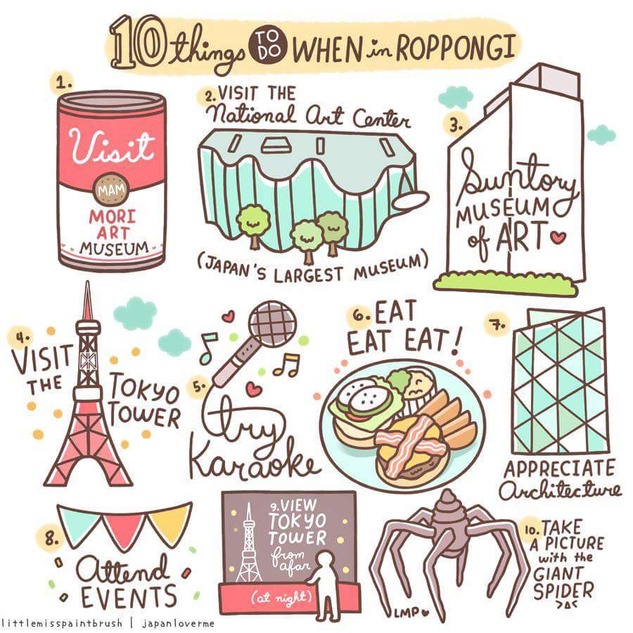 10 things TO DO WHEN in ROPPONGI
1.
Visit
MAM
MORI
ART
MUSEUM
2. VISIT THE
National Art Center
(JAPAN'S LARGEST MUSEUM)
3.
Suntory
MUSEUM
of ART
4.
VISIT
THE
TOKYO
TOWER
5.
try
Karaoke
6. EAT
EAT EAT!
7.
APPRECIATE
Architecture
8.
Attend
EVENTS
9. VIEW
TOKYO
TOWER
from
afar
(at night)
10. TAKE
A PICTURE
with the
GIANT
SPIDER
LMP
littlemisspaintbrush | japanloverme